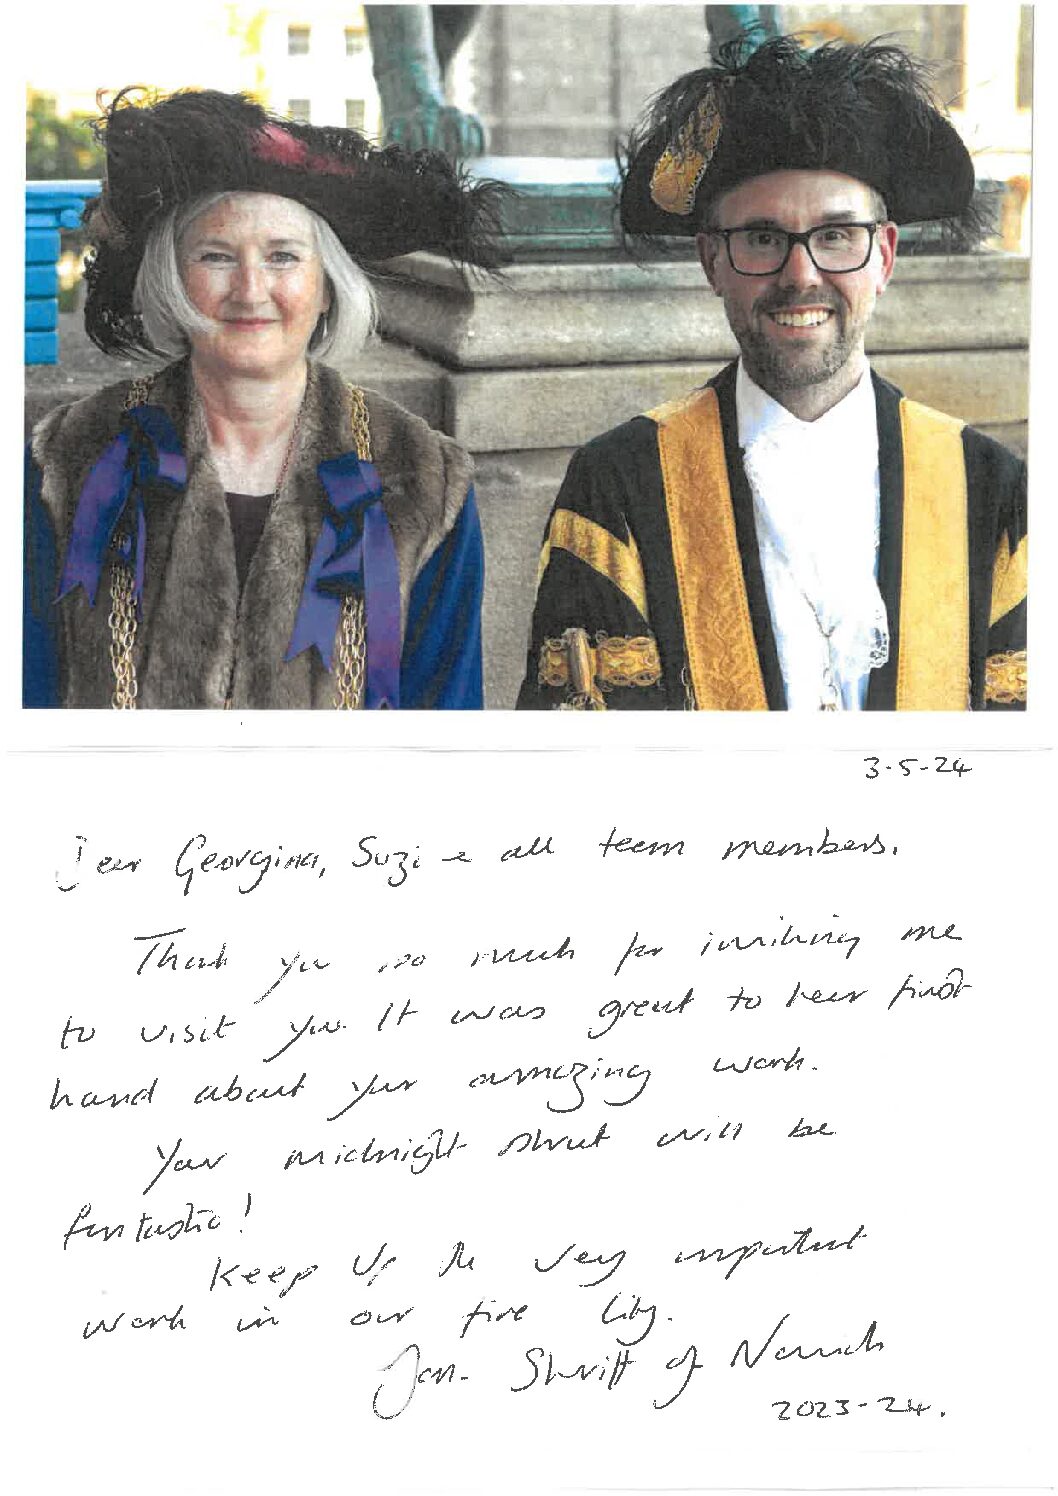 3-5-24
Dear Georgina, Suzi & all team members.
Thank you so much for inviting me
to visit you. It was great to hear first
hand about your amazing work.
Your midnight strut will be
fantastic!
Keep up the very important
work in our fine City.
Jan - Sheriff of Norwich
2023-24.